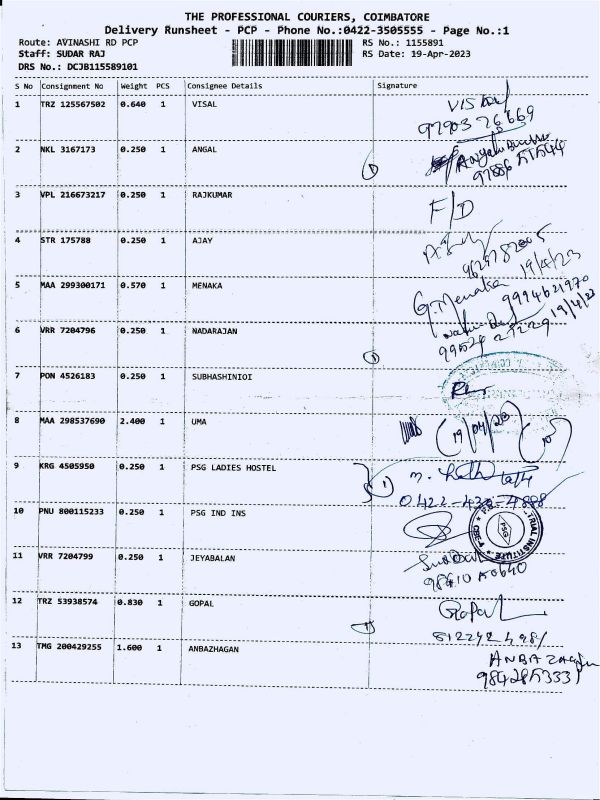 THE PROFESSIONAL COURIERS, COIMBATORE
Delivery Runsheet - PCP - Phone No.:0422-3505555 - Page No.:1
Route: AVINASHI RD PCP RS No.: 1155891
Staff: SUDAR RAJ RS Date: 19-Apr-2023
DRS No.: DCJB115589101
S No Consignment No Weight PCS Consignee Details Signature
1 TRZ 125567502 0.640 1 VISAL
9790376669
2 NKL 3167173 0.250 1 ANGAL
3 VPL 216673217 0.250 1 RAJKUMAR F/D
4 STR 175788 0.250 1 AJAY
19/4/23
5 MAA 299300171 0.570 1 MENAKA G.Menaka
9994621970
6 VRR 7204796 0.250 1 NADARAJAN
19/4/23
7 PON 4526183 0.250 1 SUBHASHINIOI
8 MAA 298537690 2.400 1 UMA
19/04/23
9 KRG 4505950 0.250 1 PSG LADIES HOSTEL
10 PNU 800115233 0.250 1 PSG IND INS
11 VRR 7204799 0.250 1 JEYABALAN
12 TRZ 53938574 0.830 1 GOPAL Gopal
13 TMG 200429255 1.600 1 ANBAZHAGAN